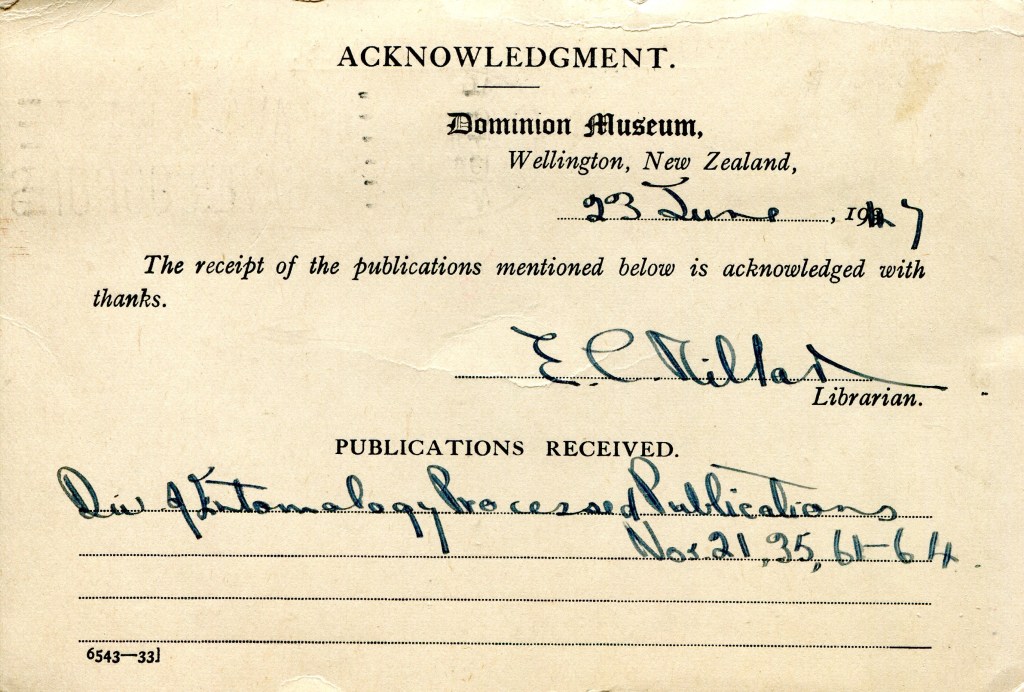 ACKNOWLEDGMENT.
Dominion Museum,
Wellington, New Zealand,
23 June, 1947
The receipt of the publications mentioned below is acknowledged with
thanks.
E. C.
Librarian.
PUBLICATIONS RECEIVED.
Div of Entomology Processed Publications
Nos. 21, 35, 61-64.
6543—33]